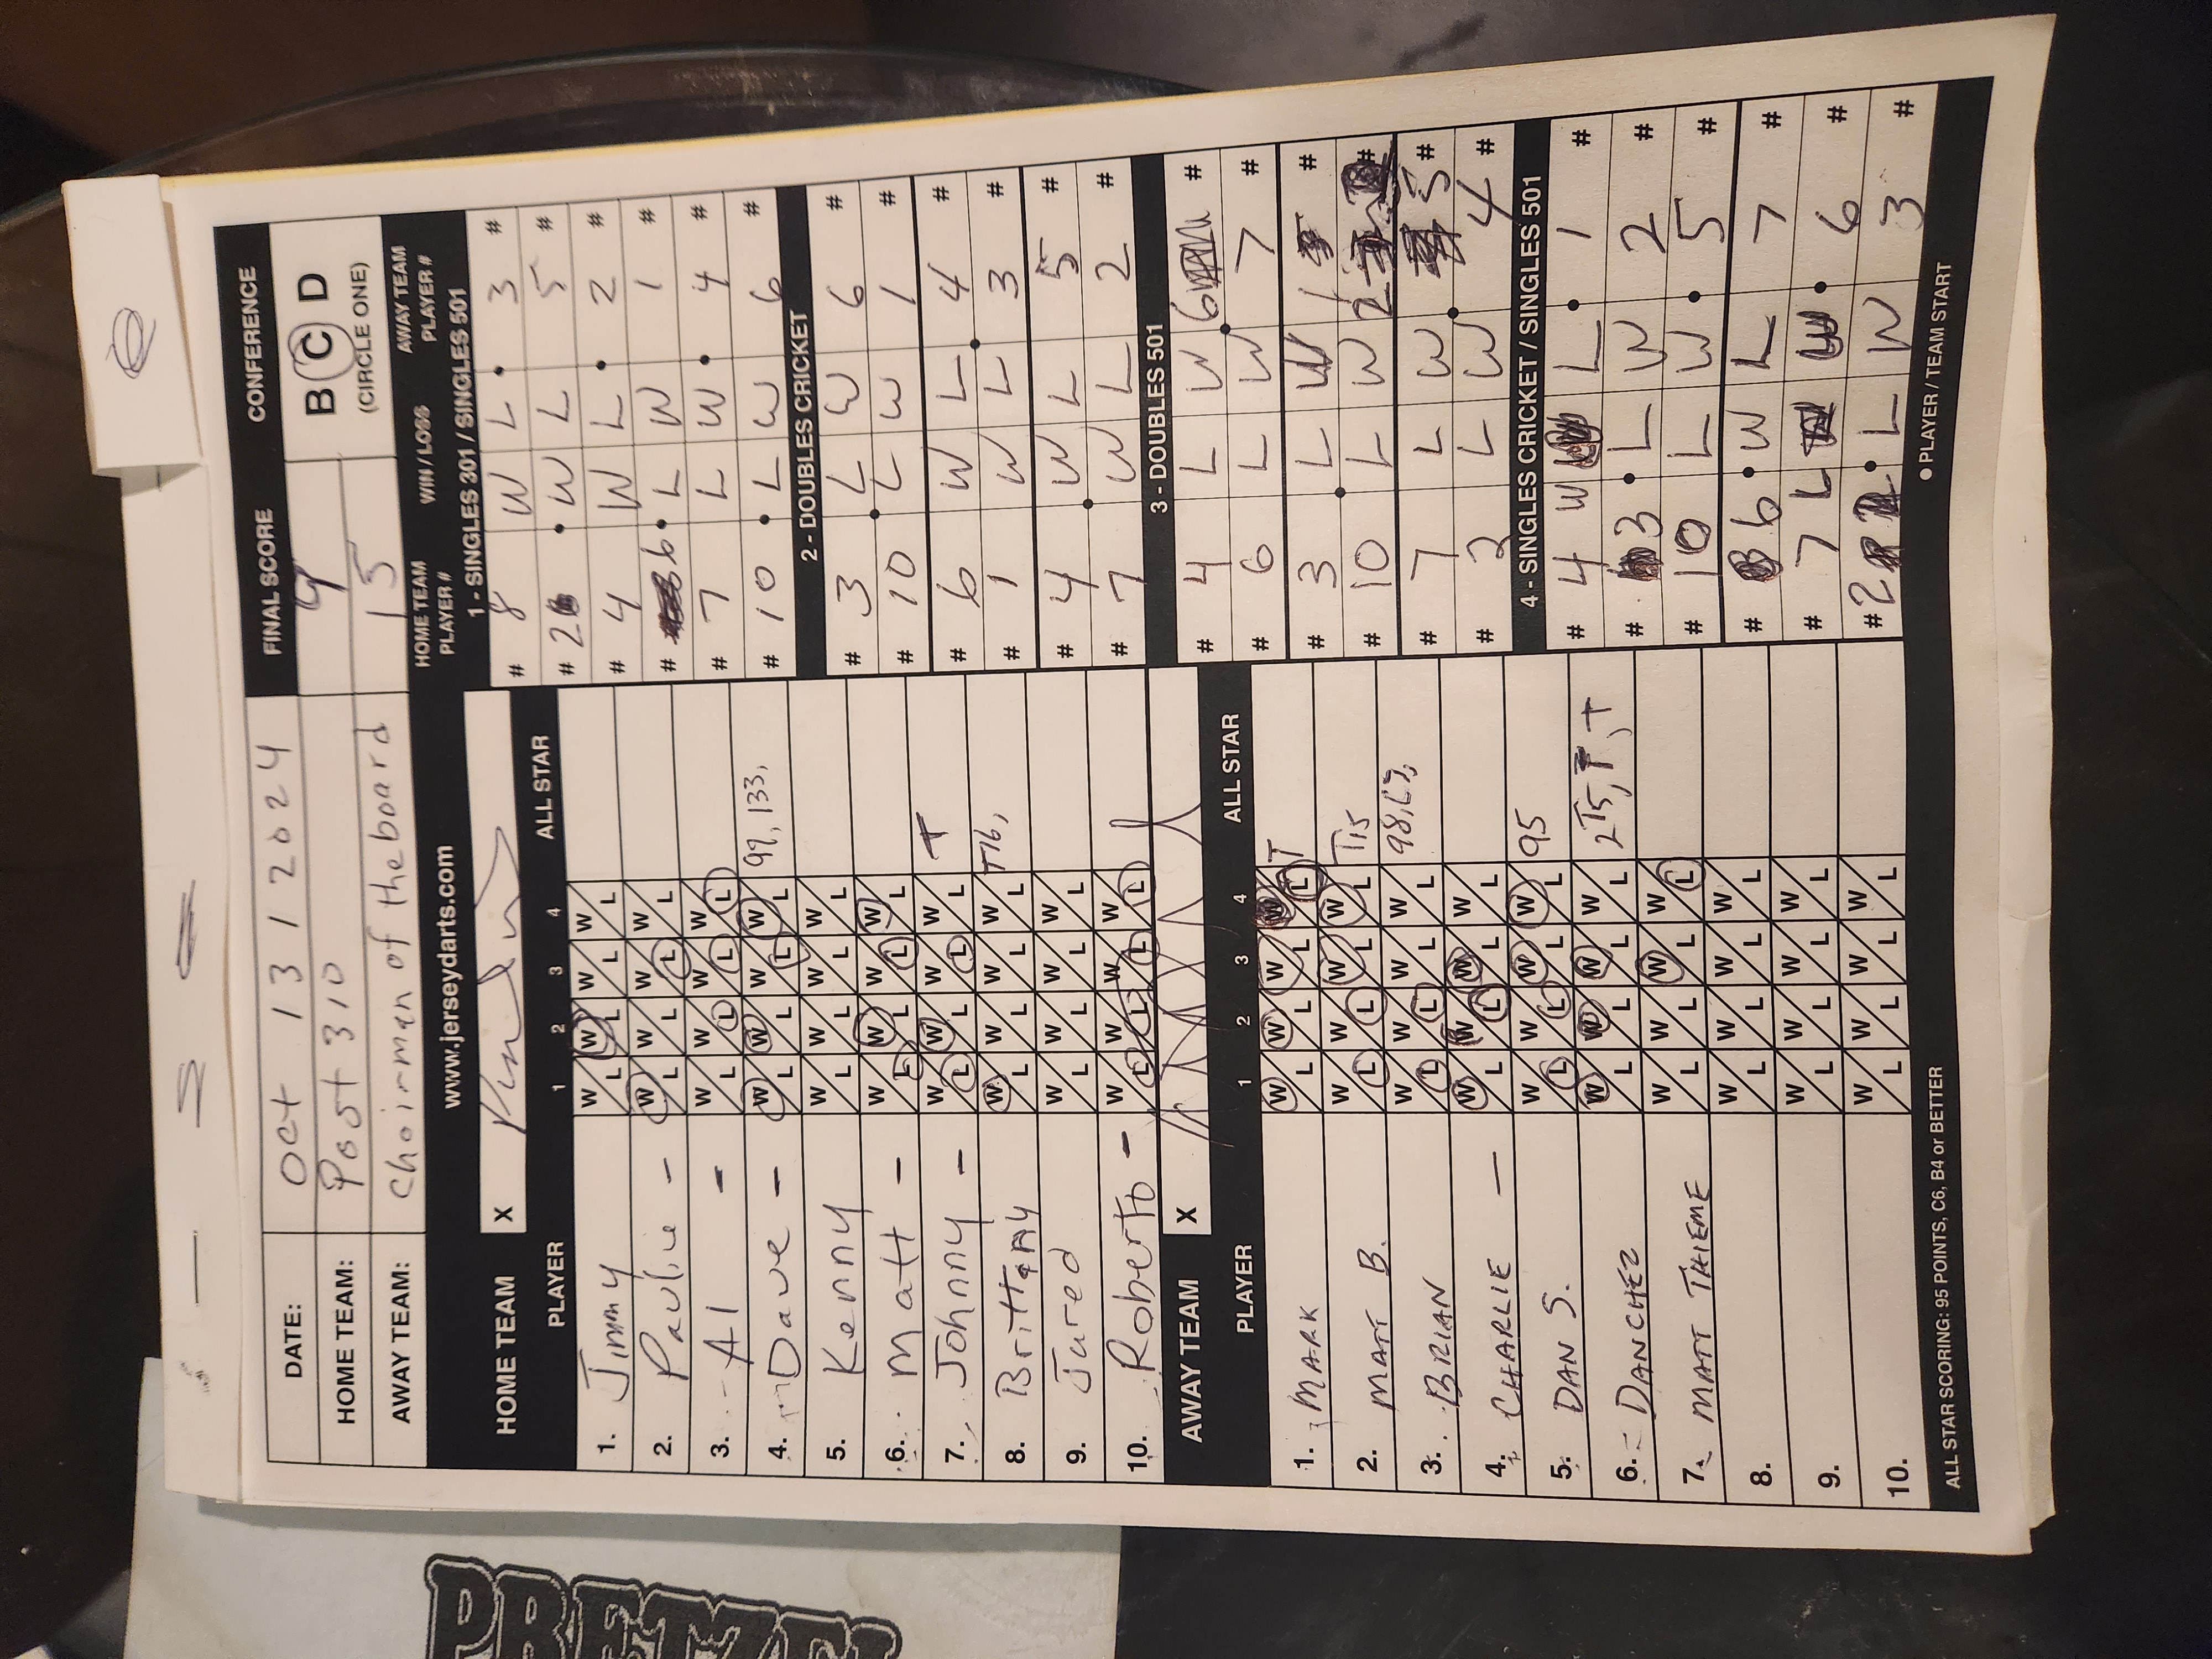 DATE: Oct 13 2024 FINAL SCORE CONFERENCE
HOME TEAM: Post 310 9 B C D
AWAY TEAM: Chairman of the board 15 (CIRCLE ONE)
www.jerseydarts.com
HOME TEAM PLAYER # WIN / LOSS AWAY TEAM PLAYER #
HOME TEAM X
PLAYER 1 2 3 4 ALL STAR
1. Jimmy W/L W/L W/L W/L
2. Paulie - W/L W/L W/L W/L
3. Al - W/L W/L W/L W/L
4. Dave - W/L W/L W/L W/L 99, 133,
5. Kenny W/L W/L W/L W/L
6. Matt - W/L W/L W/L W/L
7. Johnny - W/L W/L W/L W/L T
8. Brittany W/L W/L W/L W/L T16,
9. Jared W/L W/L W/L W/L
10. Roberto - W/L W/L W/L W/L
AWAY TEAM X
PLAYER 1 2 3 4 ALL STAR
1. MARK W/L W/L W/L W/L T
2. MATT B. W/L W/L W/L W/L T15
3. BRIAN W/L W/L W/L W/L 98,
4. CHARLIE - W/L W/L W/L W/L
5. DAN S. W/L W/L W/L W/L 95
6. DANCHEZ W/L W/L W/L W/L 2T5, T, T
7. MATT THIEME W/L W/L W/L W/L
8. W/L W/L W/L W/L
9. W/L W/L W/L W/L
10. W/L W/L W/L W/L
ALL STAR SCORING: 95 POINTS, C6, B4 or BETTER
1 - SINGLES 301 / SINGLES 501
# 8 W L 3 #
# 2 W L 5 #
# 4 W L 2 #
# 6 L W 1 #
# 7 L W 4 #
# 10 L W 6 #
2 - DOUBLES CRICKET
# 3 L W 6 #
# 10 L W 1 #
# 6 W L 4 #
# 1 W L 3 #
# 4 W L 5 #
# 7 W L 2 #
3 - DOUBLES 501
# 4 L W 6 #
# 6 L W 7 #
# 3 L W 1 #
# 10 L W 2 #
# 7 L W 5 #
# 2 L W 4 #
4 - SINGLES CRICKET / SINGLES 501
# 4 W L 1 #
# 3 L W 2 #
# 10 L W 5 #
# 6 W L 7 #
# 7 L W 6 #
# 2 L W 3 #
● PLAYER / TEAM START
PRETZEL